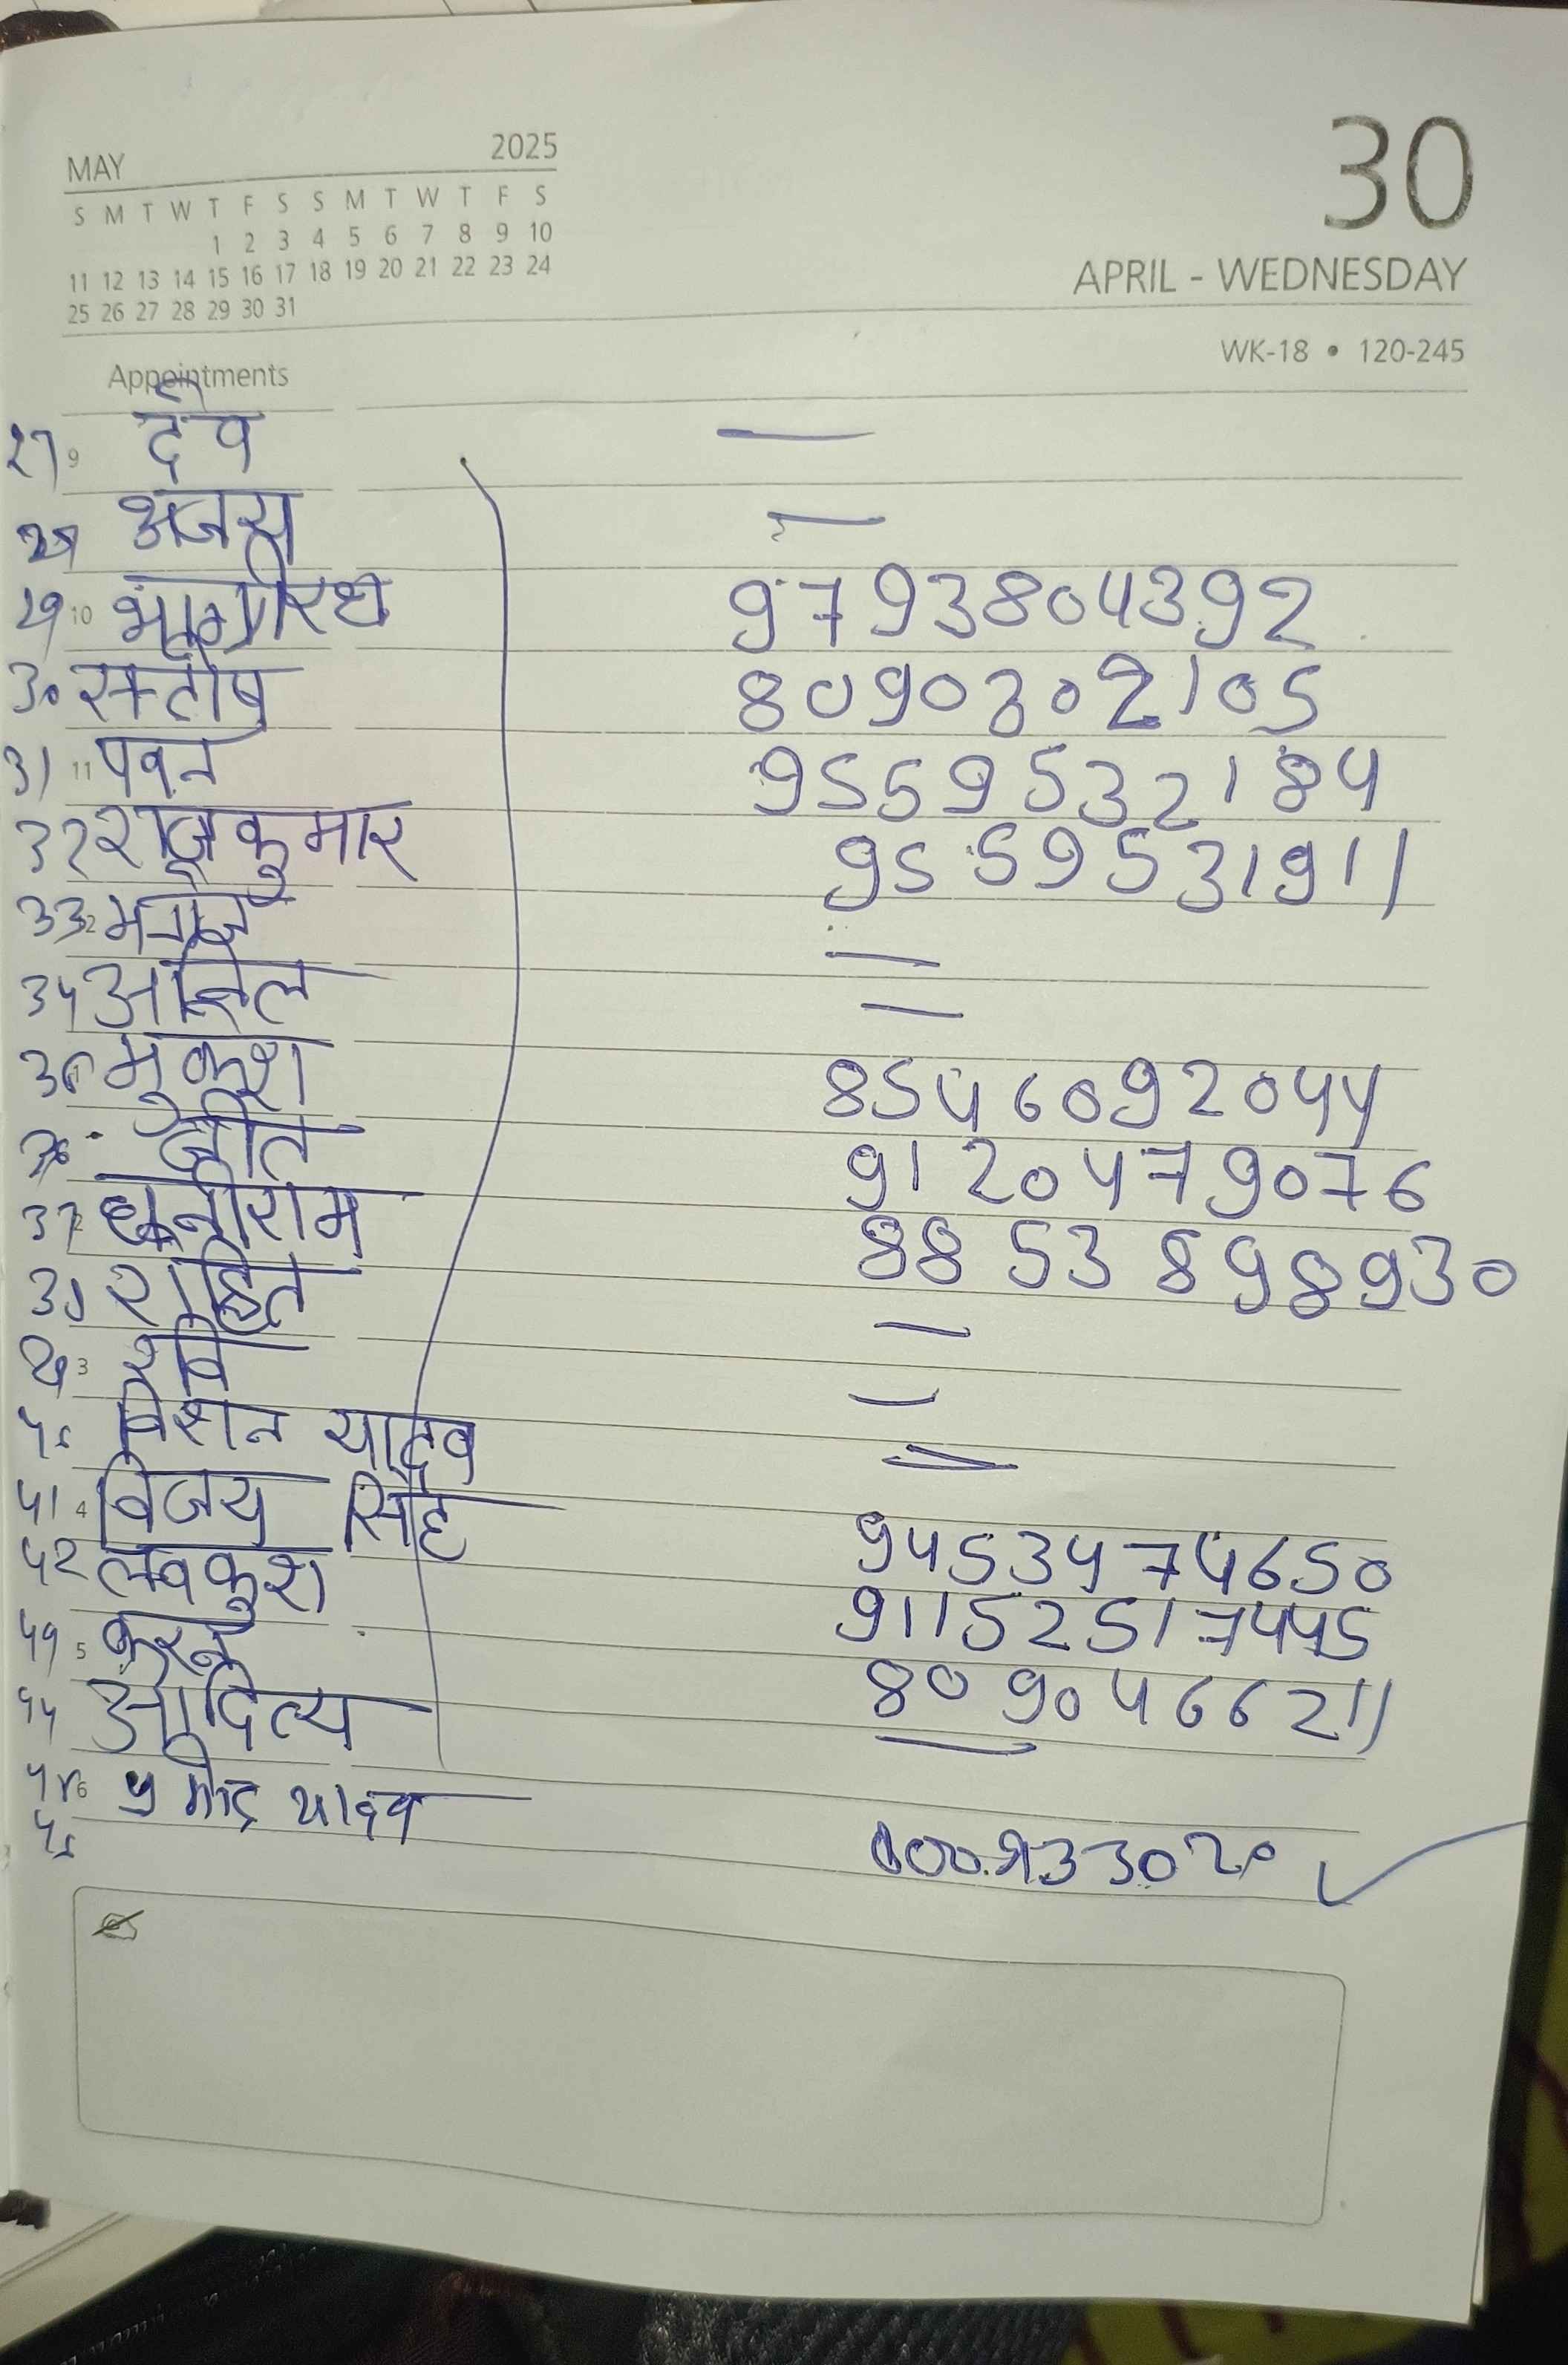 MAY 2025
S M T W T F S S M T W T F S
1 2 3 4 5 6 7 8 9 10
11 12 13 14 15 16 17 18 19 20 21 22 23 24
25 26 27 28 29 30 31
30
APRIL - WEDNESDAY
WK-18 • 120-245
Appointments
27 9 देव —
अजय —
29 10 भागीरथ 9793804392
30 सन्तोष 8090302105
31 11 पवन 9559532184
32 राजकुमार 9559531911
33 मनोज —
34 अनिल —
मुकेश 8546092044
जीत 9120479076
37 धनीराम 8853898930
रोहित —
3 रवि —
विशन यादव
41 4 विजय सिंह 9453474650
42 लवकुश 9115251 7445
5 करन 8090466211
44 आदित्य —
6 यादव